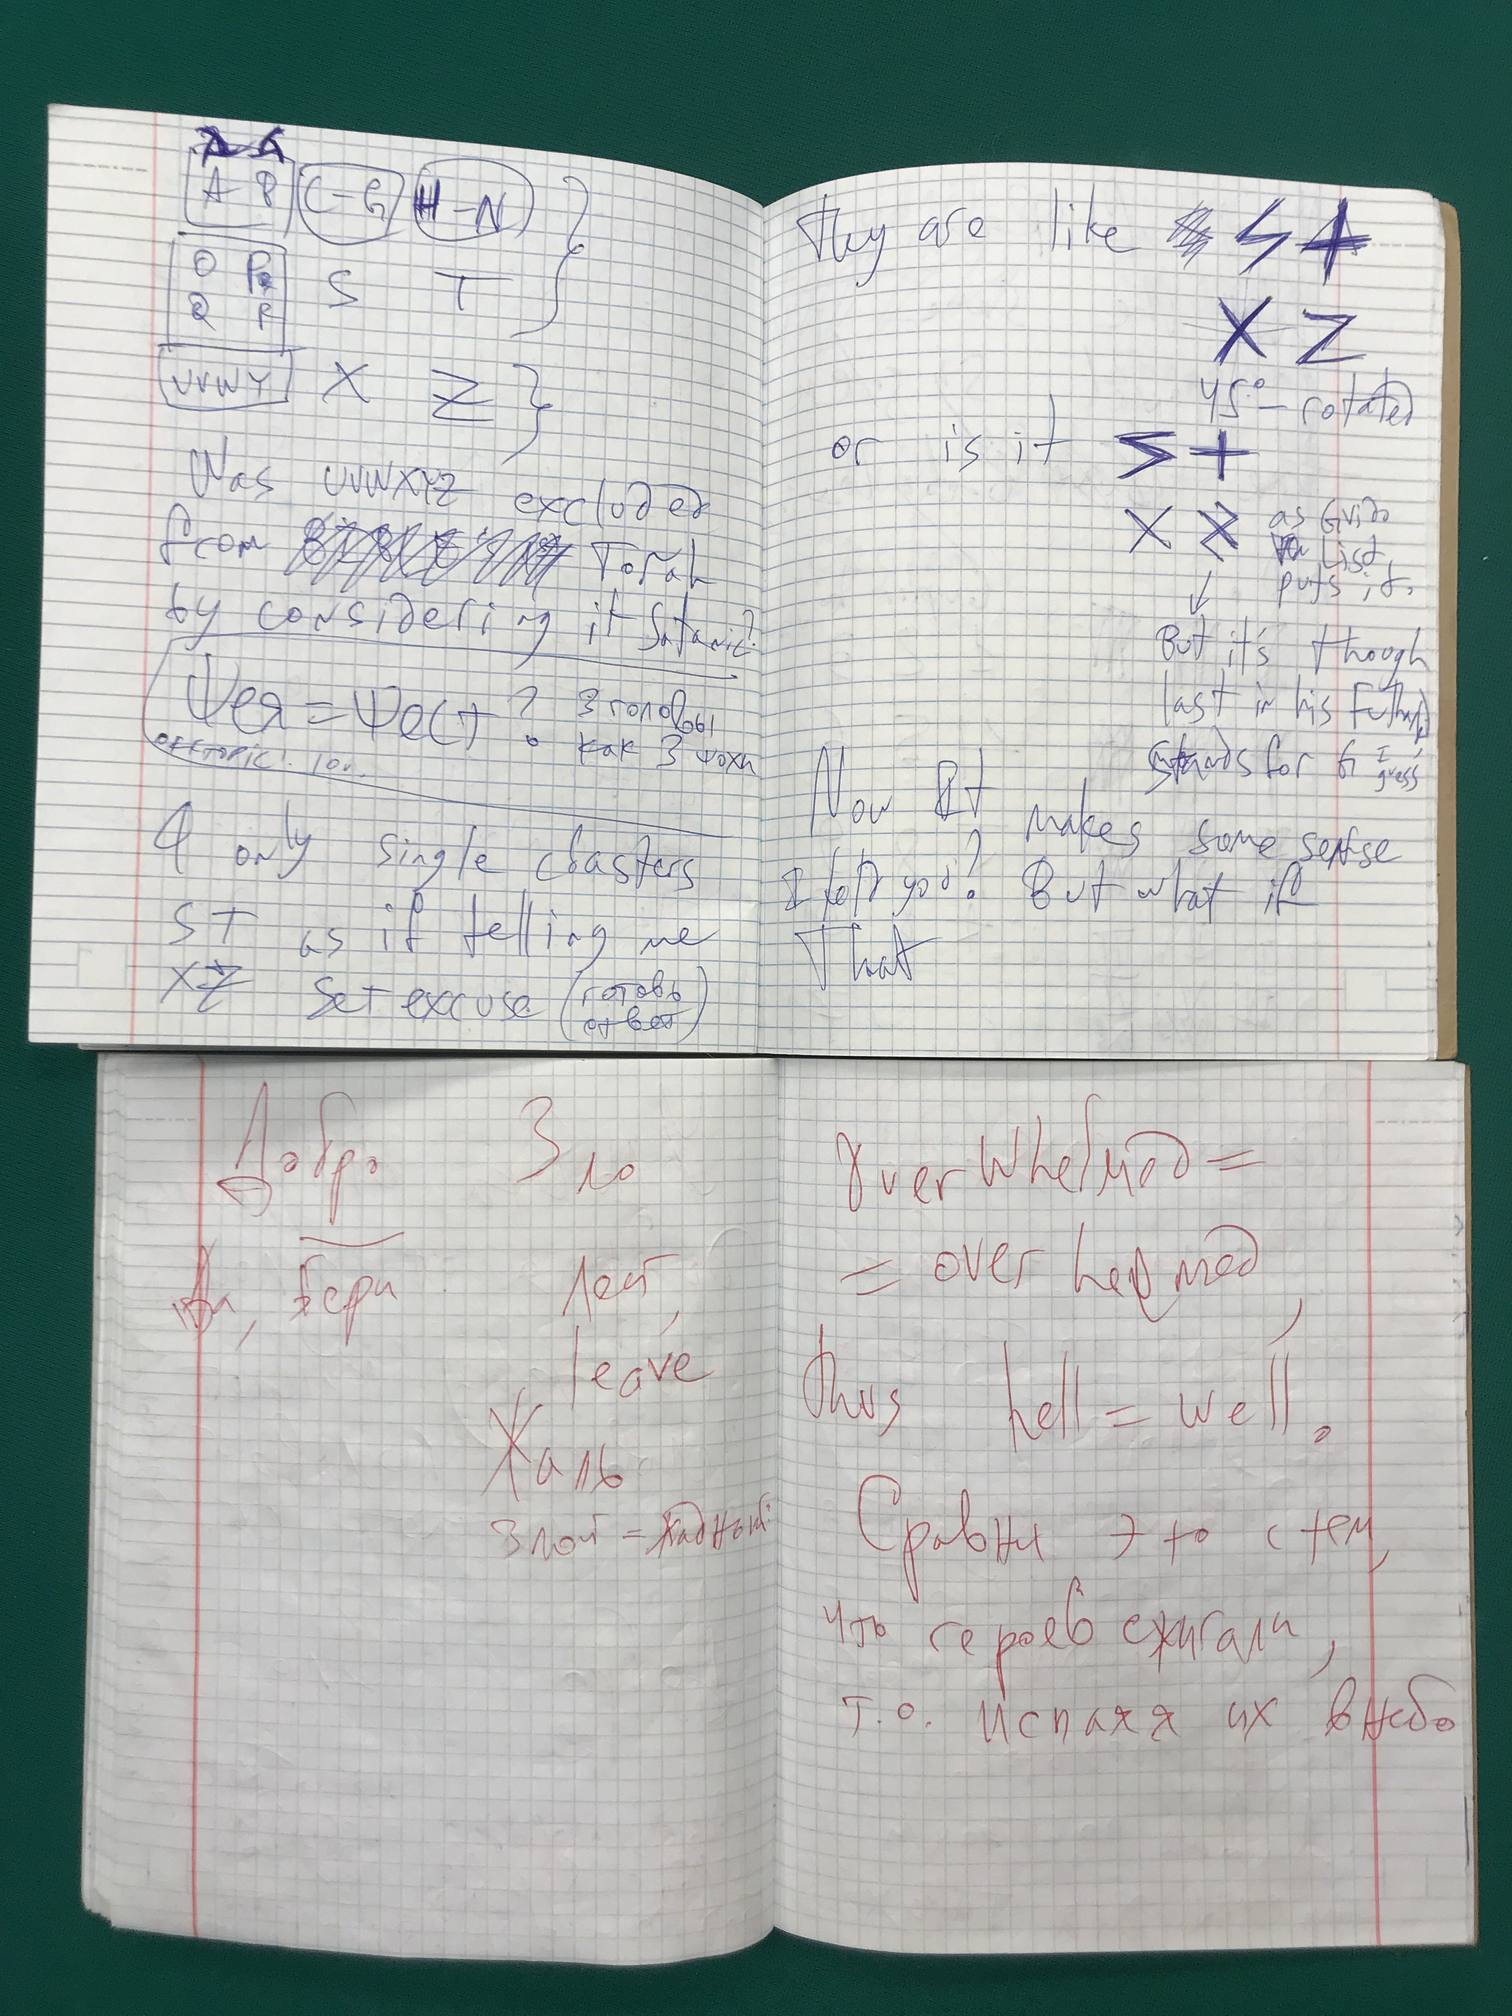 A-B C-G H-N
O P S T
Q R
UVWY X Z
Was UVWXYZ excluded
from Torah
by considering it Satanic?
Ψея = Ψест ? 3 головы
как 3
offtopic:
4 only single clasters
ST as if telling me
XZ Set excuse (готовь
ответ)
They are like S +
X Z
45°-rotated
or is it S +
X Z as Guido
von List
puts it.
↓
But it's though
last in his Futhark,
stands for G I
guess
Now it makes some sense
I told you? But what if
That
Добро Зло
Да, бери Лей,
leave
Жаль
Злой = жадный
overwhelmed =
= over helmed,
thus hell = well.
Сравни это с тем,
что героев сжигали,
т.о. испаяя их в небо